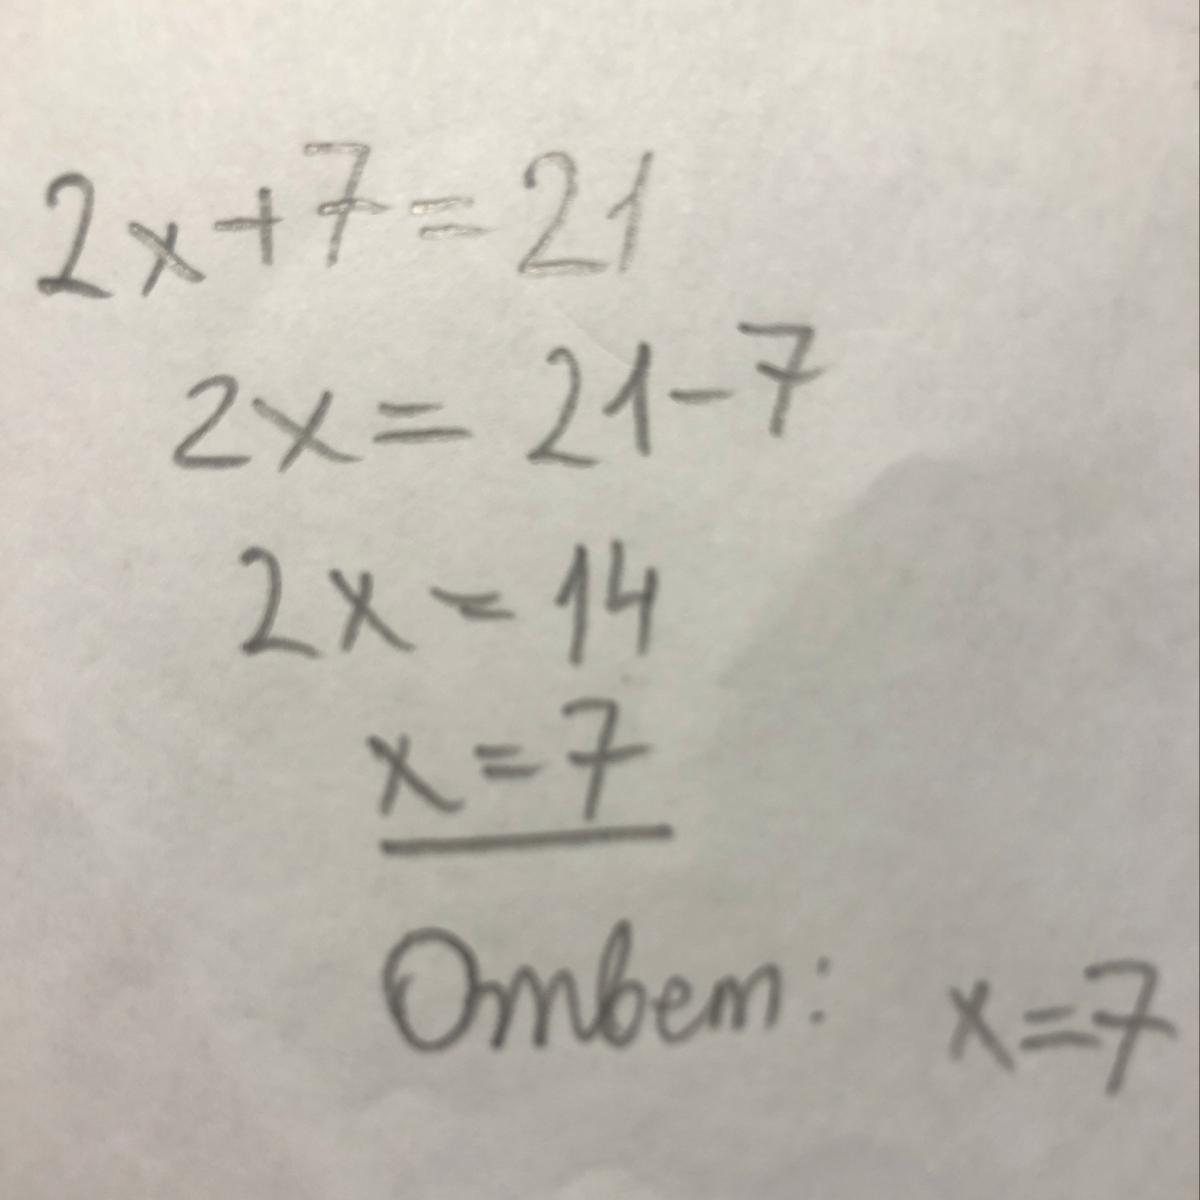 2x+7=21
2x=21-7
2x=14
x=7
Ответ: x=7